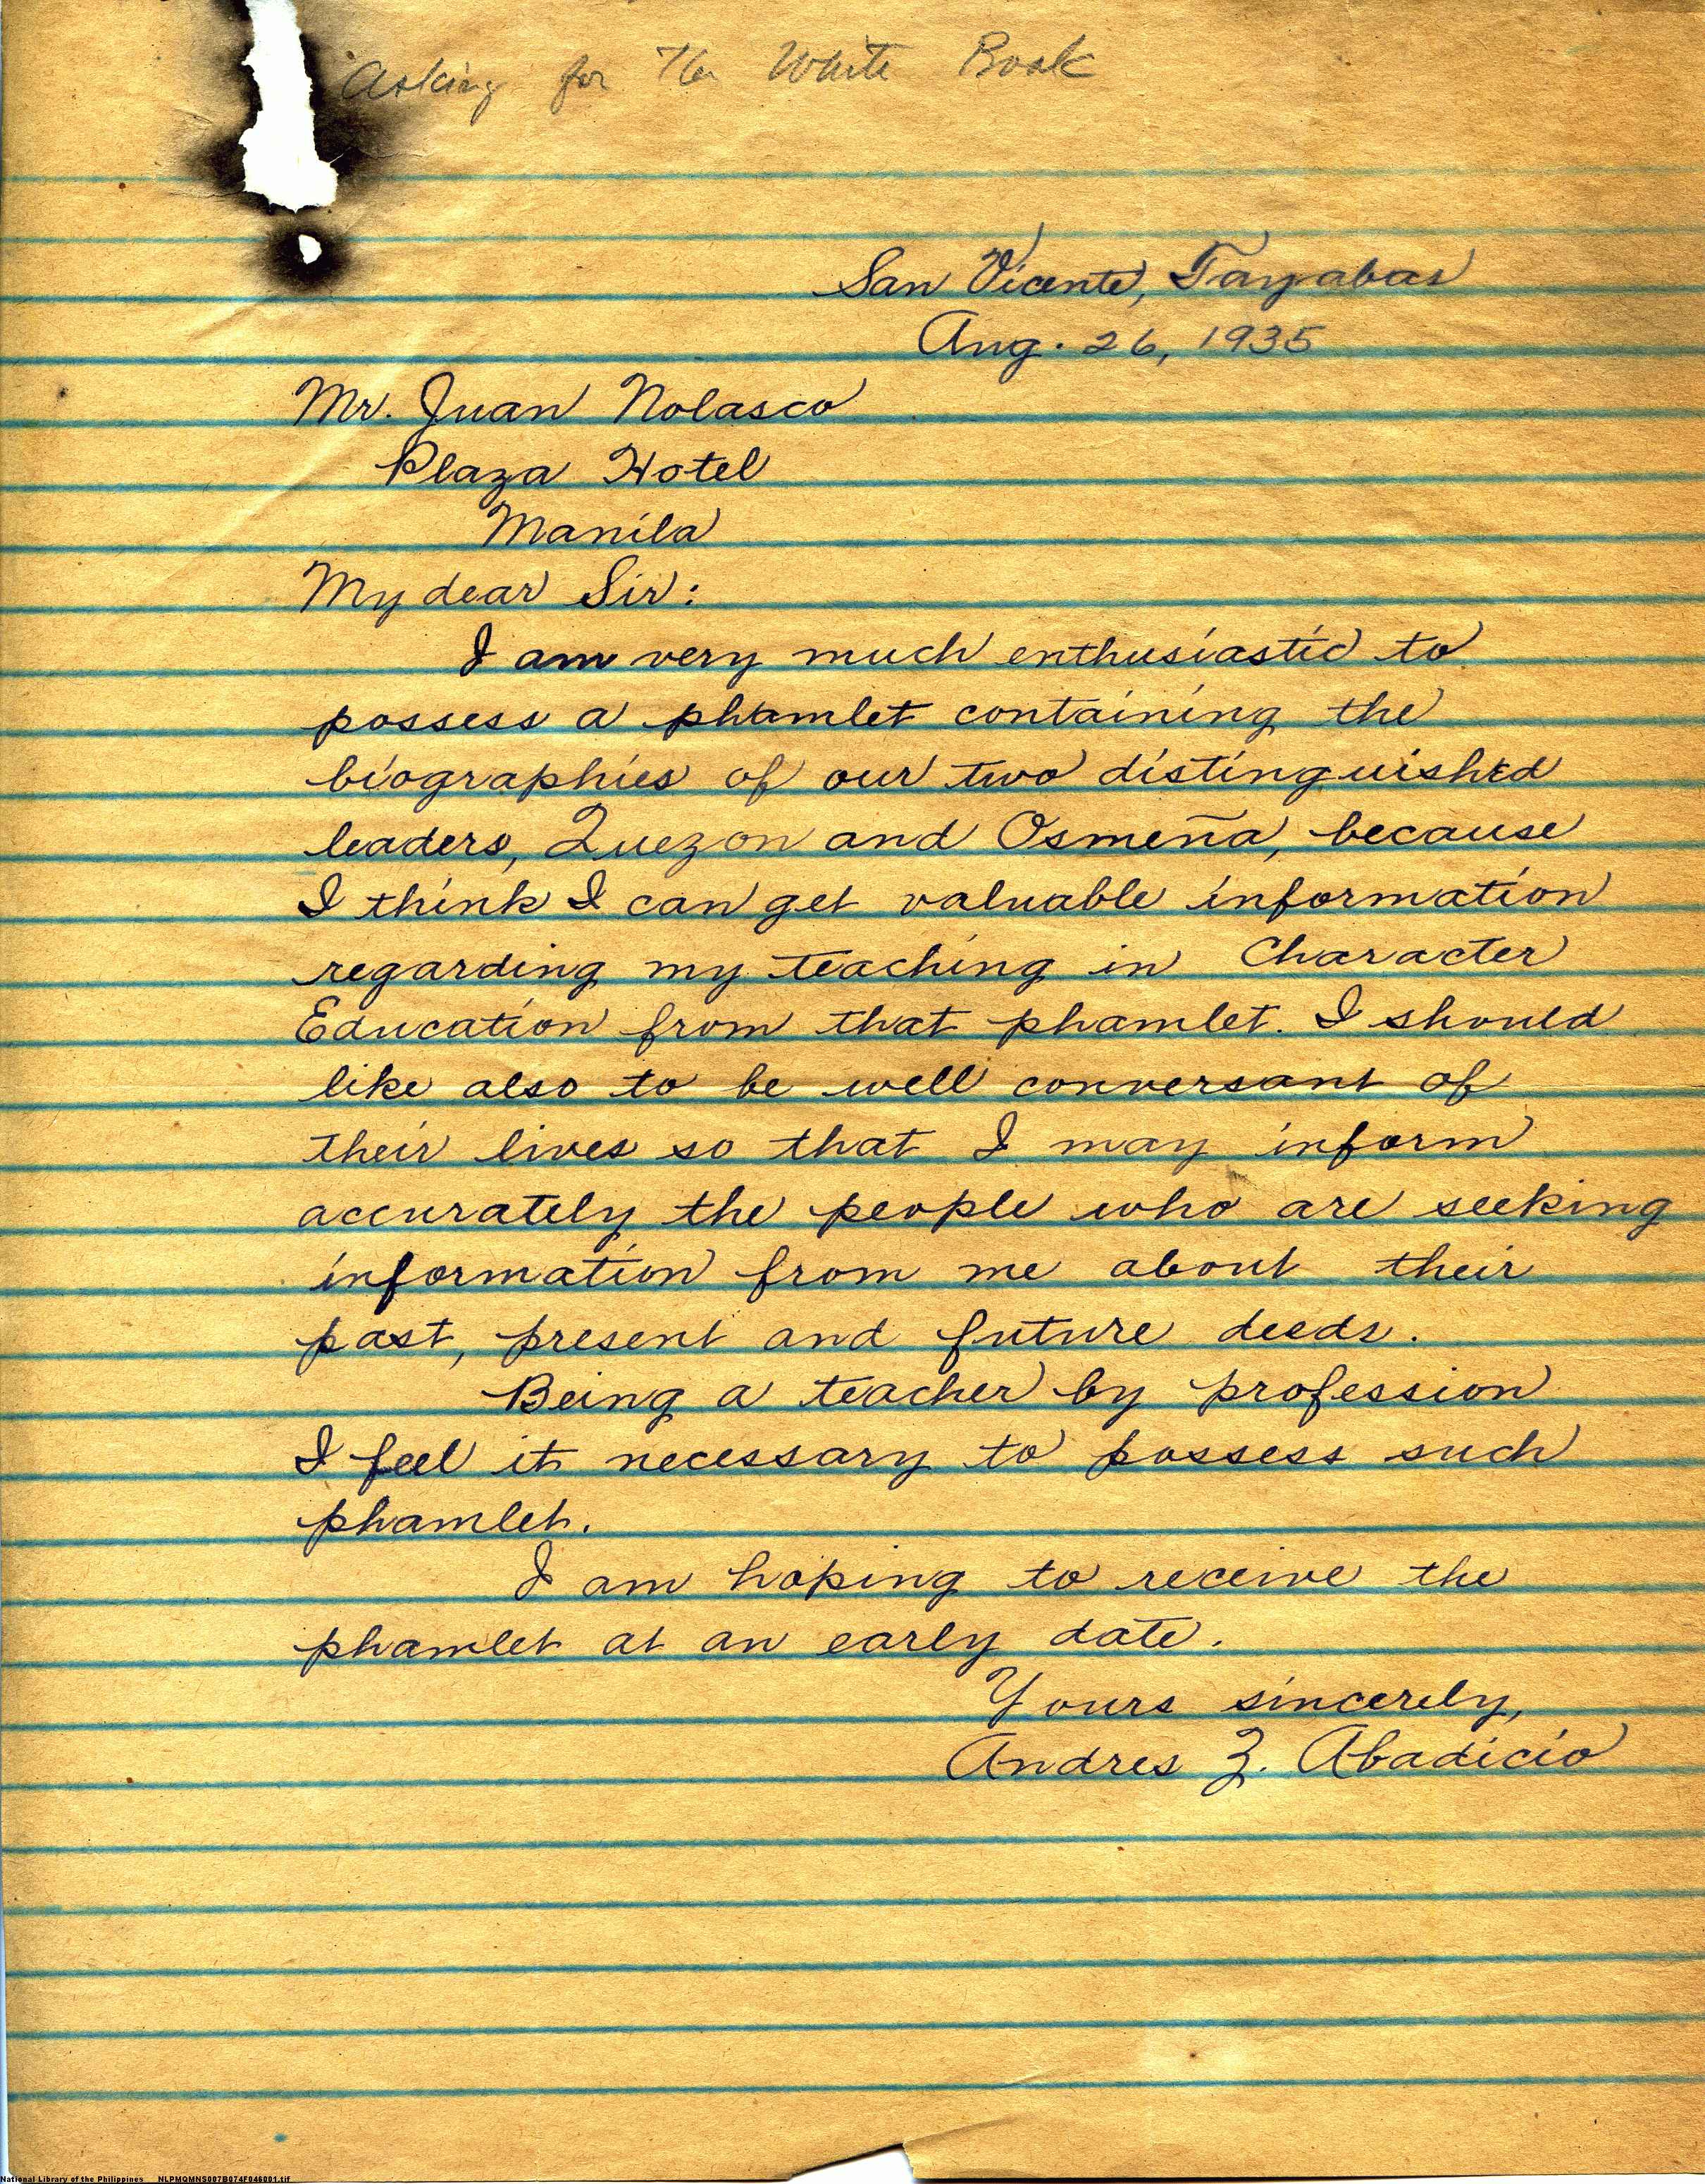 Asking for the White Book
San Vicente, Tayabas
Aug. 26, 1935
Mr. Juan Nolasco
Plaza Hotel
Manila
My dear Sir:
I am very much enthusiastic to
possess a phamlet containing the
biographies of our two distinguished
leaders, Quezon and Osmeña, because
I think I can get valuable information
regarding my teaching in Character
Education from that phamlet. I should
like also to be well conversant of
their lives so that I may inform
accurately the people who are seeking
information from me about their
past, present and future deeds.
Being a teacher by profession
I feel it necessary to possess such
phamlet.
I am hoping to receive the
phamlet at an early date.
Yours sincerely,
Andres Z. Abadicio
National Library of the Philippines NLPMQMNS007B074F046001.tif